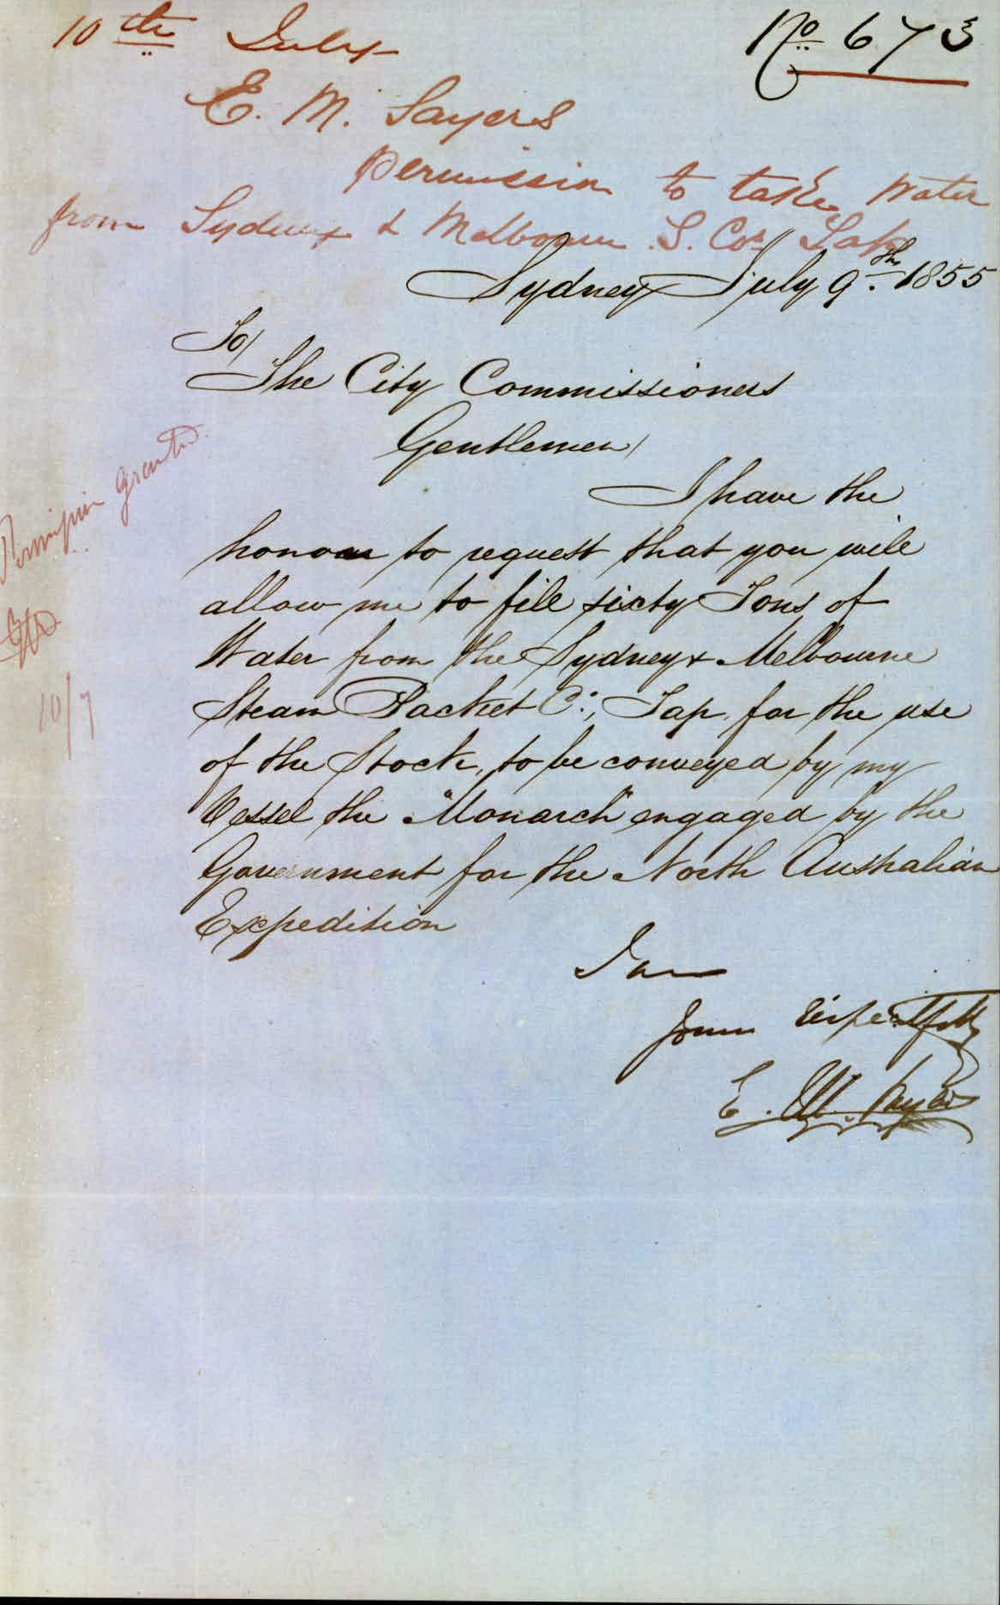 10th July
No 673
E. M. Sayers
Permission to take Water
from Sydney & Melbourne S. Cos/ Tap
Sydney July 9th. 1855
To/
The City Commissioners
Gentlemen/
I have the
honour to request that you will
allow me to fill sixty Tons of
Water from the Sydney & Melbourne
Steam Packet Co., Tap for the use
of the Stock, to be conveyed by my
Vessel the "Monarch" engaged by the
Government for the North Australian
Expedition
I am
Yours respectfully
E. M. Sayers
Permission granted.
10/7